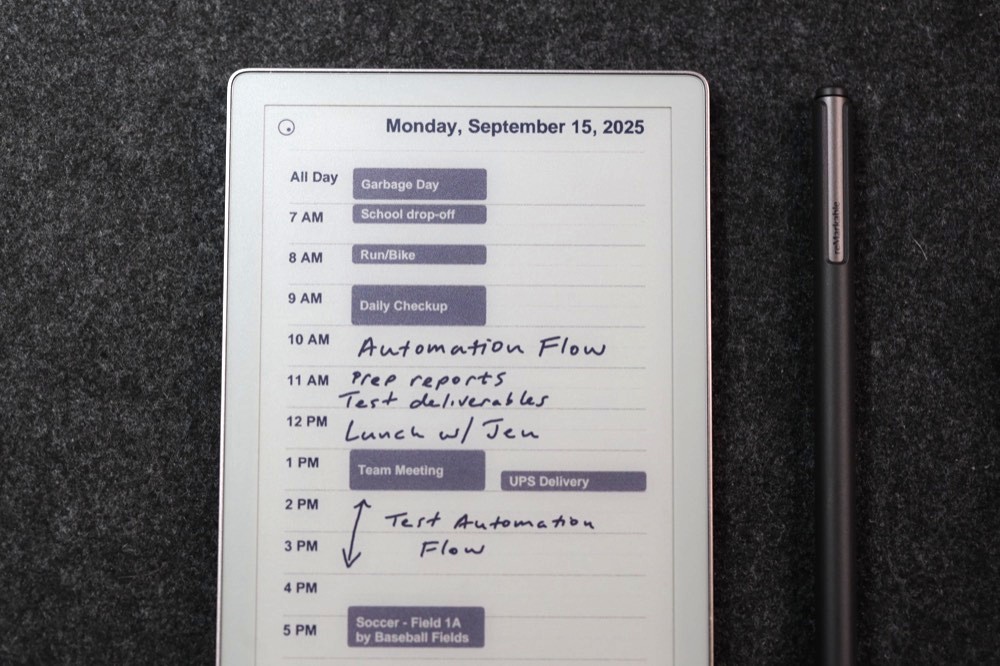 Monday, September 15, 2025
All Day
Garbage Day
7 AM
School drop-off
8 AM
Run/Bike
9 AM
Daily Checkup
10 AM
Automation Flow
11 AM
Prep reports
Test deliverables
12 PM
Lunch w/ Jen
1 PM
Team Meeting
UPS Delivery
2 PM
Test Automation
3 PM
Flow
4 PM
5 PM
Soccer - Field 1A
by Baseball Fields
reMarkable